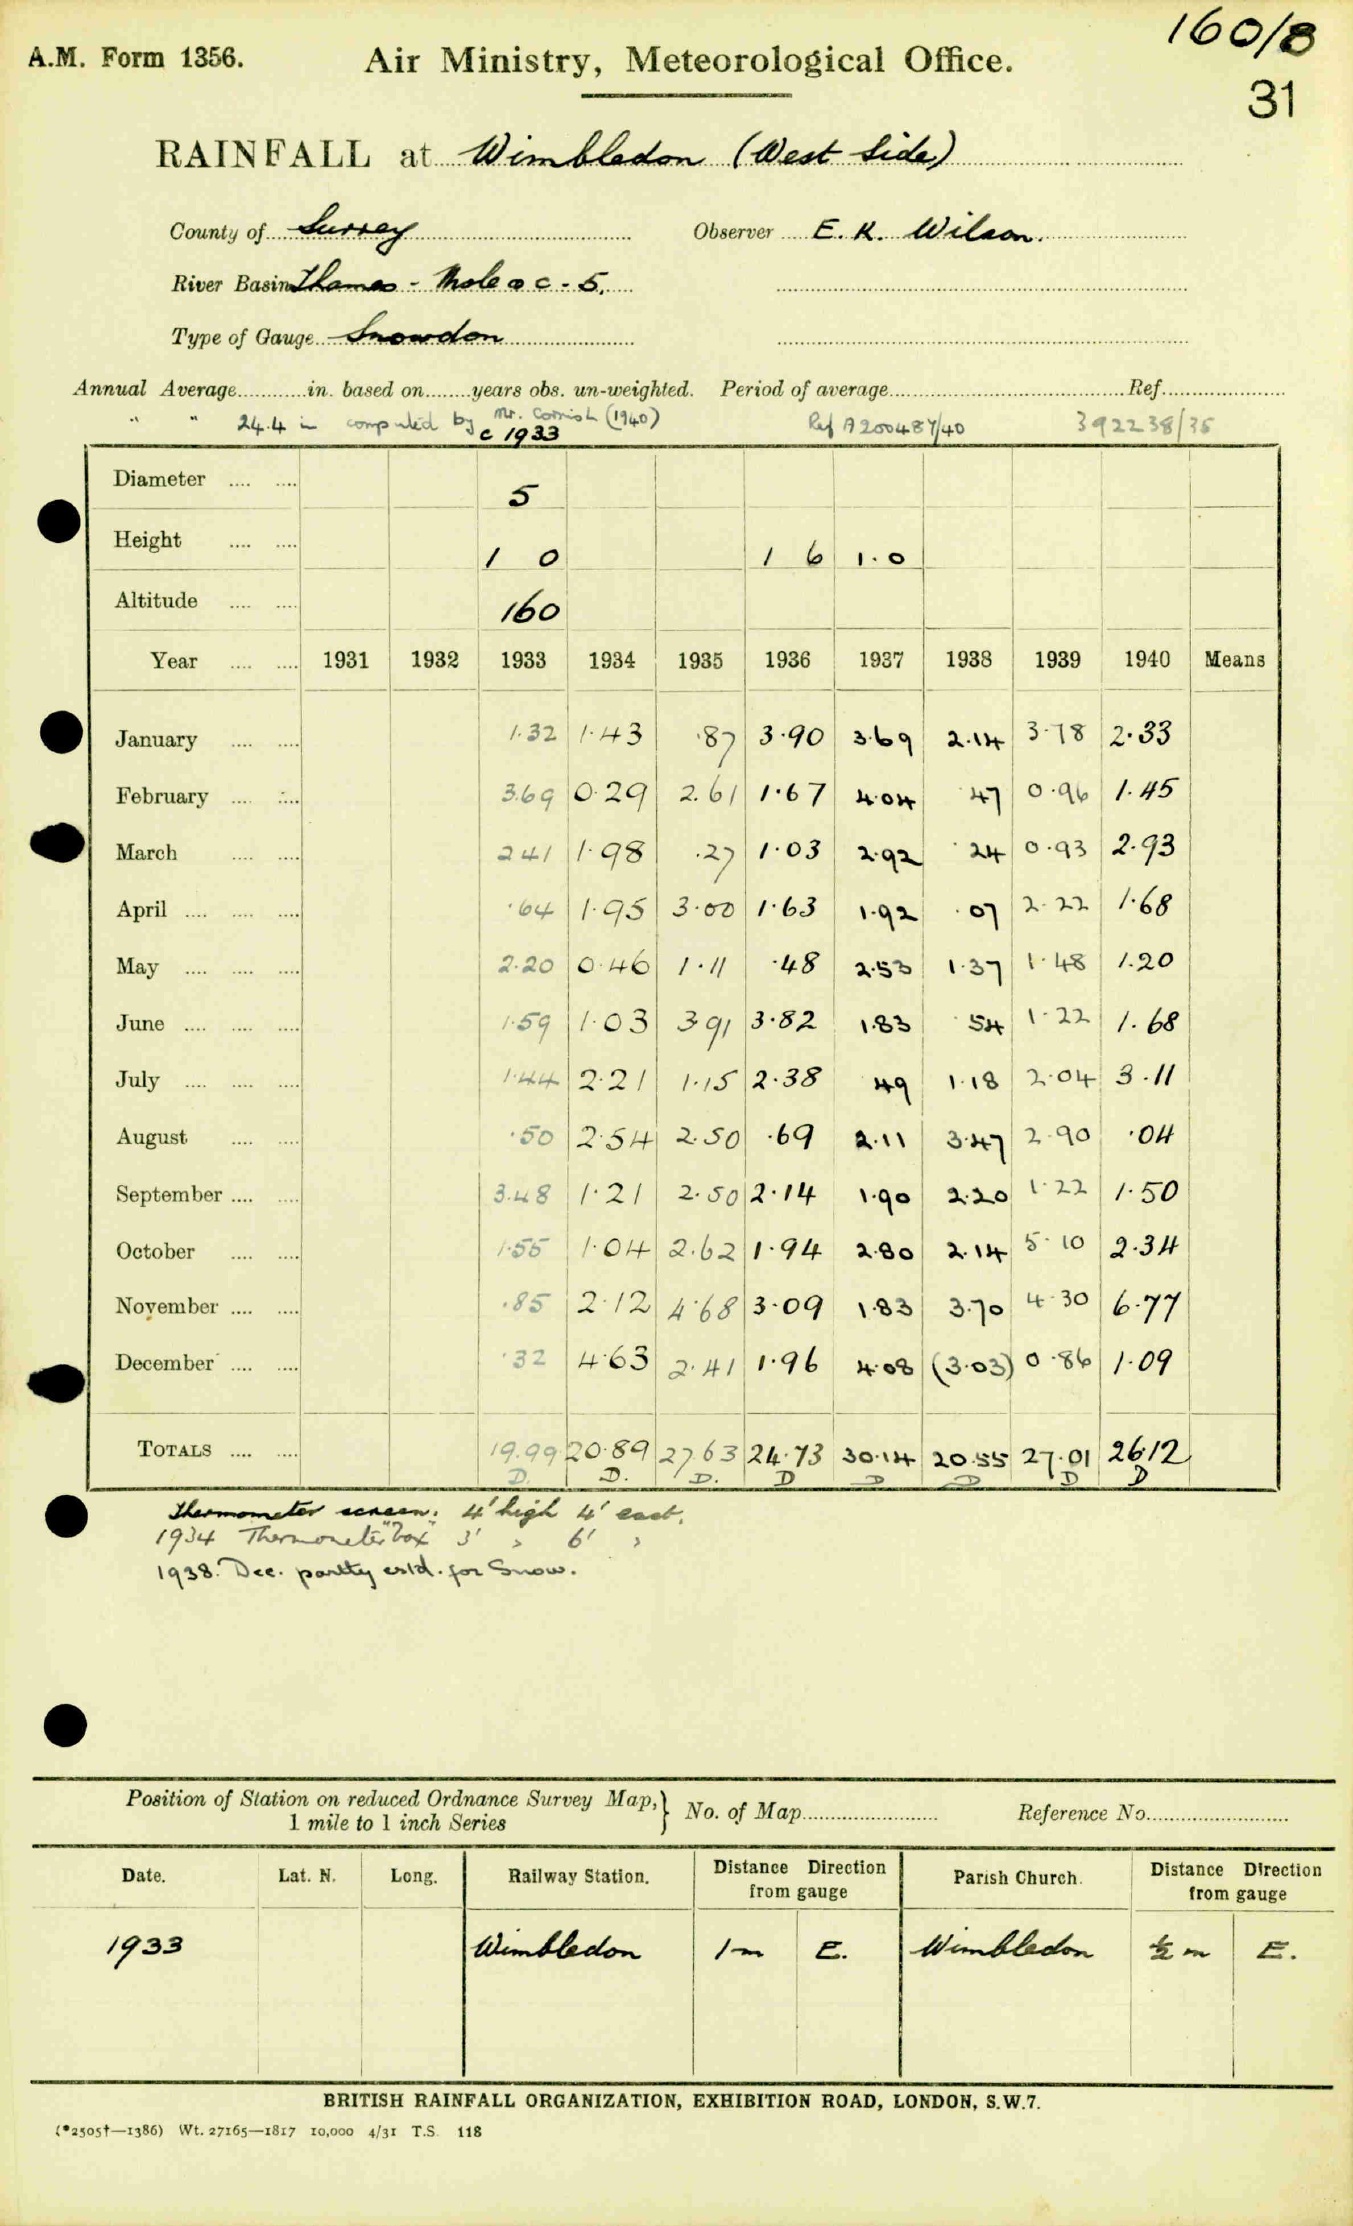 160/8
A.M. Form 1356. Air Ministry, Meteorological Office.
31
RAINFALL at Wimbledon (West Side)
County of Surrey Observer E. K. Wilson.
River Basin Thames - Mole &c - 5.
Type of Gauge Snowdon
Annual Average in. based on years obs. un-weighted. Period of average Ref.
" " 24.4 in computed by Mr. Cornish (1940) Ref A200487/40 392238/35
c 1933
Diameter 5
Height 1 0 1 6 1.0
Altitude 160
Year 1931 1932 1933 1934 1935 1936 1937 1938 1939 1940 Means
January 1.32 1.43 .87 3.90 3.69 2.14 3.78 2.33
February 3.69 0.29 2.61 1.67 4.04 .47 0.96 1.45
March 2.41 1.98 .27 1.03 2.92 .24 0.93 2.93
April .64 1.95 3.00 1.63 1.92 .07 2.22 1.68
May 2.20 0.46 1.11 .48 2.53 1.37 1.48 1.20
June 1.59 1.03 3.91 3.82 1.83 .54 1.22 1.68
July 1.44 2.21 1.15 2.38 .49 1.18 2.04 3.11
August .50 2.54 2.50 .69 2.11 3.47 2.90 .04
September 3.48 1.21 2.50 2.14 1.90 2.20 1.22 1.50
October 1.55 1.04 2.62 1.94 2.80 2.14 5.10 2.34
November .85 2.12 4.68 3.09 1.83 3.70 4.30 6.77
December .32 4.63 2.41 1.96 4.08 (3.03) 0.86 1.09
TOTALS 19.99 20.89 27.63 24.73 30.14 20.55 27.01 26.12
D. D. D. D D D D D
Thermometer screen: 4' high 4' east.
1934 Thermometer "box" 3' " 6' "
1938. Dec. partly estd. for Snow.
Position of Station on reduced Ordnance Survey Map, } No. of Map Reference No.
1 mile to 1 inch Series
Date. Lat. N. Long. Railway Station. Distance Direction from gauge Parish Church. Distance Direction from gauge
1933 Wimbledon 1 m E. Wimbledon ½ m E.
BRITISH RAINFALL ORGANIZATION, EXHIBITION ROAD, LONDON, S.W.7.
(*2505†—1386) Wt. 27165—1817 10,000 4/31 T.S. 118